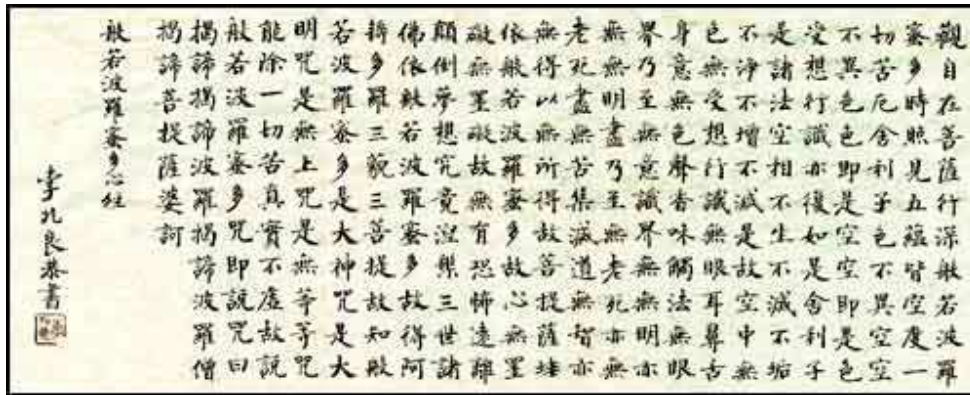 觀自在菩薩行深般若波羅
蜜多時照見五蘊皆空度一
切苦厄舍利子色不異空空
不異色色即是空空即是色
受想行識亦復如是舍利子
是諸法空相不生不滅不垢
不淨不增不減是故空中無
色無受想行識無眼耳鼻舌
身意無色聲香味觸法無眼
界乃至無意識界無無明亦
無無明盡乃至無老死亦無
老死盡無苦集滅道無智亦
無得以無所得故菩提薩埵
依般若波羅蜜多故心無罣
礙無罣礙故無有恐怖遠離
顛倒夢想究竟涅槃三世諸
佛依般若波羅蜜多故得阿
耨多羅三藐三菩提故知般
若波羅蜜多是大神咒是大
明咒是無上咒是無等等咒
能除一切苦真實不虛故說
般若波羅蜜多咒即說咒曰
揭諦揭諦波羅揭諦波羅僧
揭諦菩提薩婆訶
般若波羅蜜多心經
李 良恭書